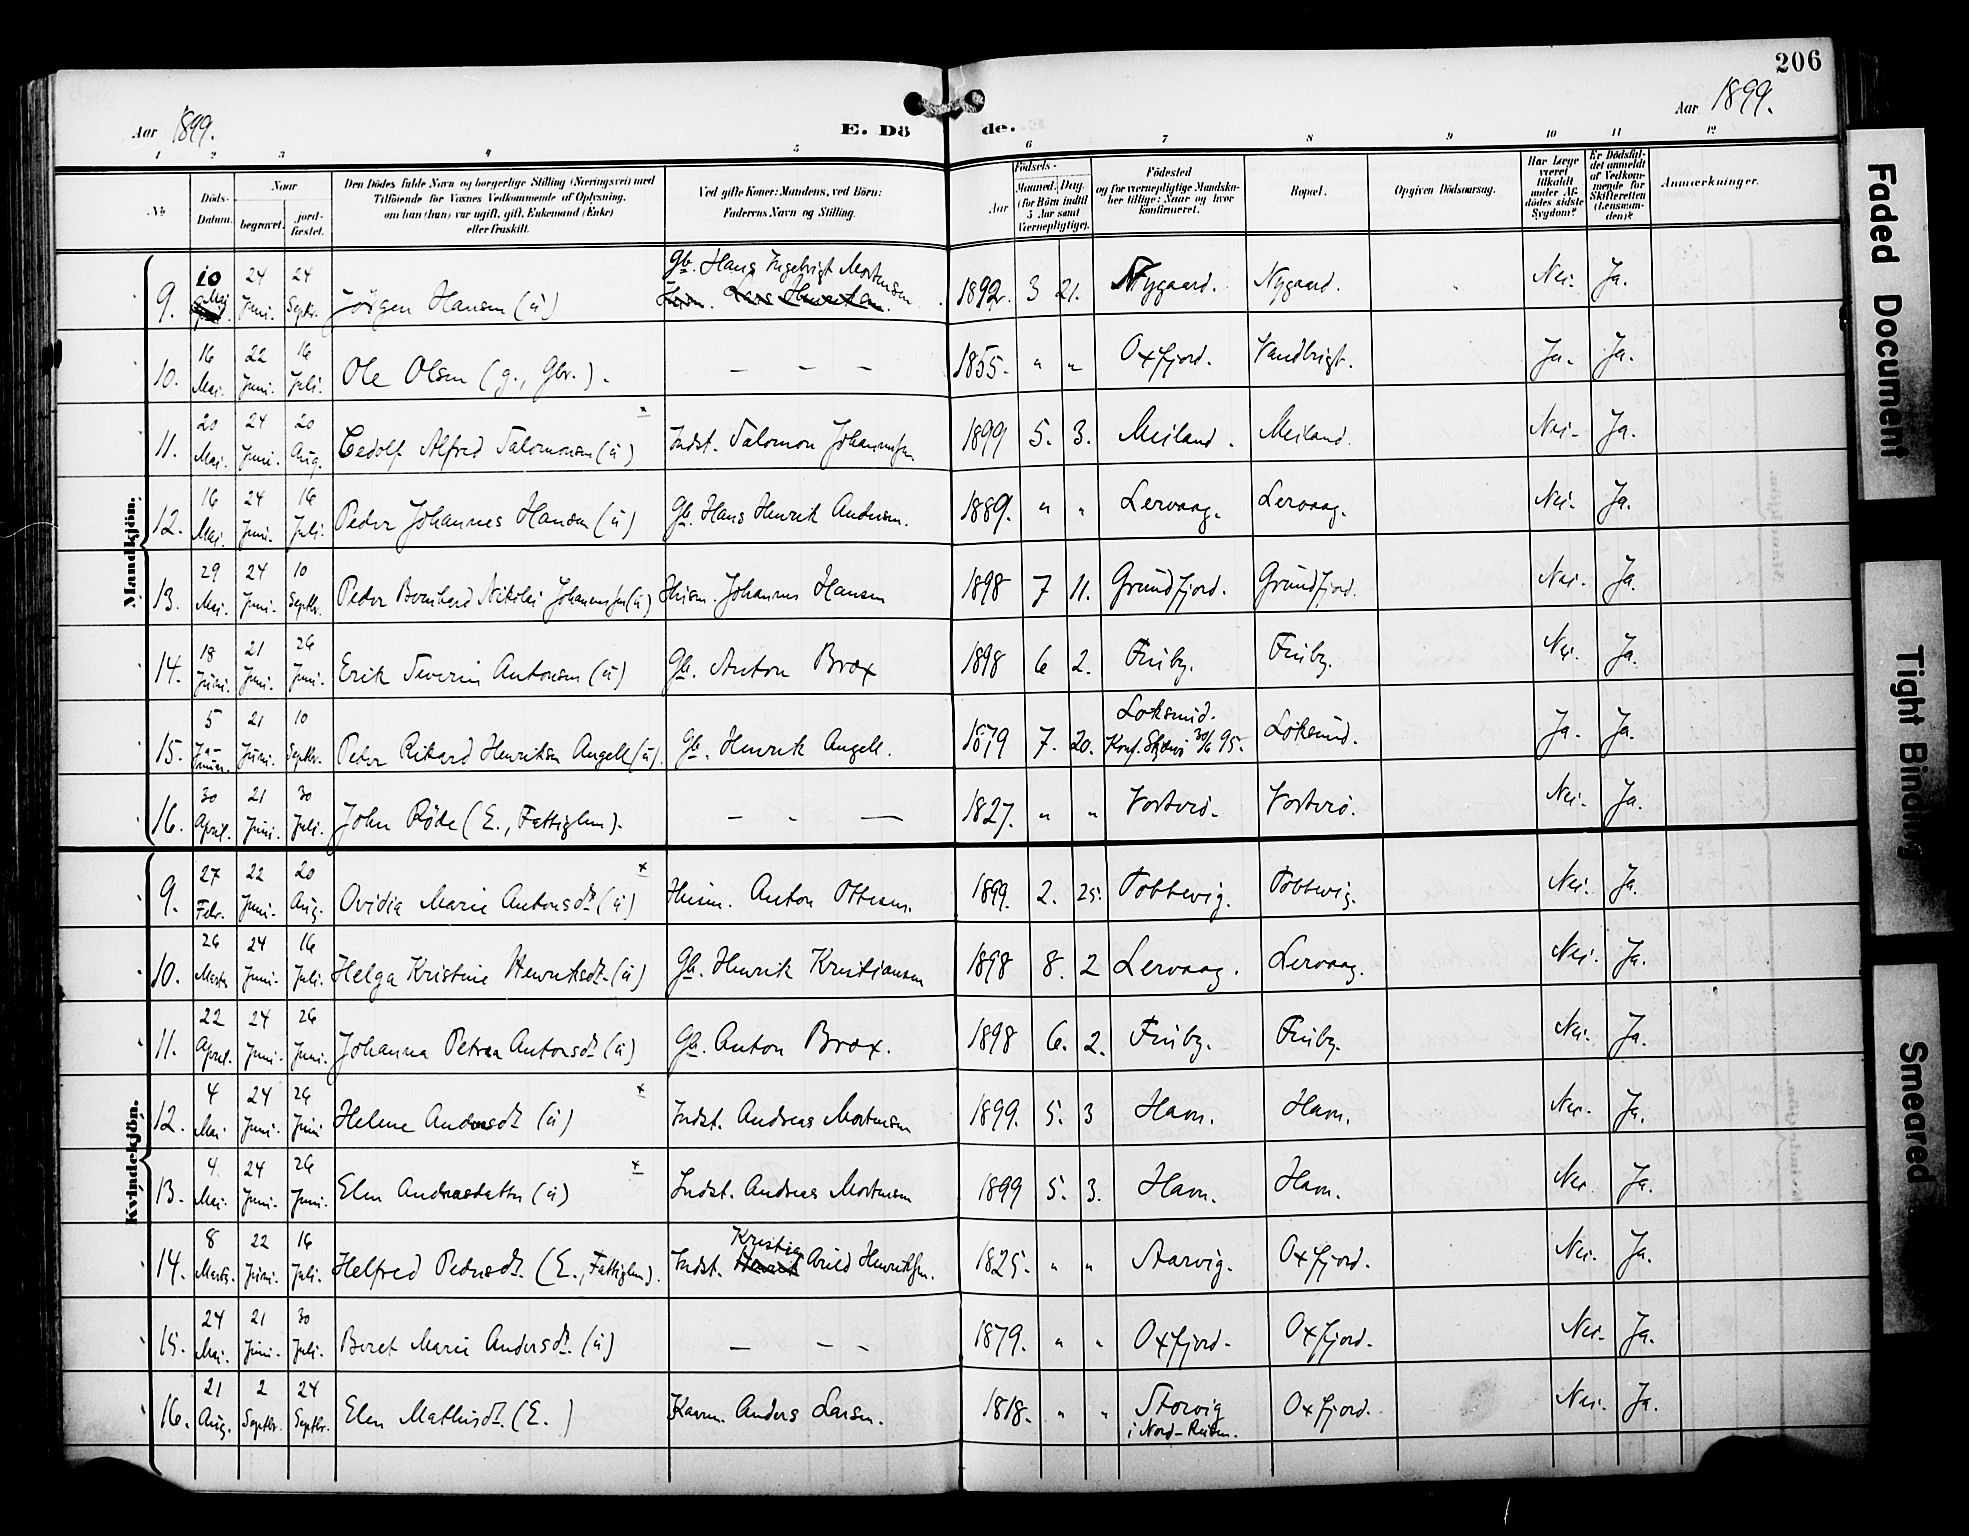 206
Aar 1899.
E. Döde.
Aar 1899.
1 2 3 4 5 6 7 8 9 10 11 12
No
Döds-Datum.
Naar
begravet.
jord-fæstet.
Den Dödes fulde Navn og borgerlige Stilling (Næringsvei) med
Tilföiende for Voxnes Vedkommende af Oplysning,
om han (hun) var ugift, gift, Enkemand (Enke)
eller fraskilt.
Ved gifte Koner: Mandens, ved Börn:
Faderens Navn og Stilling.
Födsels-
Aar
Maaned. Dag.
(for Börn indtil
5 Aar samt
Værnepligtige).
Födested
og for værnepligtige Mandska-
ber tillige: Naar og hvor
konfirmeret.
Bopæl.
Opgiven Dödsaarsag.
Har Læge
været
tilkaldt
under Af-
dödes sidste
Sygdom?
Er Dödsfal-
det anmeldt
af Vedkom-
mende for
Skifteretten
(Lensman-
den)?
Anmærkninger.
Mandkjön.
9. 10 Mai 24 Juni. 24 Septr. Jörgen Hansen (ú) Gb. Hans Ingebrigt Mortensen 1892. 3 21. Nygaard. Nygaard. Nei. Ja.
10. 16 Mai. 22 Juni. 16 Juli. Ole Olsen (g., Gbr.). – – – 1855. " " Oxfjord. Vandbrigt. Ja. Ja.
11. 20 Mai. 24 Juni. 20 Aug. Cedolf Alfred Salomonsen (ú) x Indst. Salomon Johannessen 1899 5. 3. Meiland. Meiland. Nei. Ja.
12. 16 Mai. 24 Juni. 16 Juli. Peder Johannes Hansen (ú) Gb. Hans Henrik Andersen. 1889. " " Lervaag. Lervaag. Nei. Ja.
13. 29 Mai. 24 Juni. 10 Septbr. Peder Bernhard Nikolai Johannessen (ú) Huusm. Johannes Hansen 1898 7 11. Grundfjord. Grundfjord. Nei. Ja.
14. 18 Juni. 21 Juni. 26 Juni. Erik Severin Antonsen (ú) Gb. Anton Brox 1898 6 2. Finby. Finby. Nei. Ja.
15. 5 Januar. 21 Juni. 10 Septbr. Peder Rikard Henriksen Angell (ú). Gb. Henrik Angell. 1879 7. 20. Loksund. Konf. Skjervö 30/6 95. Loksund. Ja. Ja.
16. 30 April. 21 Juni. 30 Juli. John Röde (E., Fattiglem). – – – 1827. " " Vorterö. Vorterö. Nei. Ja.
Kvindekjön.
9. 27 Febr. 22 Juni. 20 Aug. Ovidia Marie Antonsdr. (ú) x Huusm. Anton Ottesen. 1899. 2. 25. Tobbevig. Tobbevig. Nei. Ja.
10. 26 Marts 24 Juni. 16 Juli. Helga Kristine Henriksdr. (ú) Gb. Henrik Kristiansen 1898 8. 2 Lervaag. Lervaag. Nei. Ja.
11. 22 April. 24 Juni. 26 Juni. Johanna Petrea Antonsdr. (ú) Gb. Anton Brox. 1898 6. 2. Finby. Finby. Nei. Ja.
12. 4 Mai. 24 Juni. 26 Juni Helene Andreasdr. (ú) x Indst. Andreas Mortensen 1899. 5. 3 Havn. Havn. Nei. Ja.
13. 4. Mai. 24 Juni. 26 Juni. Elen Andreasdatter (ú) x Indst. Andreas Mortensen 1899 5. 3. Havn. Havn. Nei Ja.
14. 8 Marts. 22 Juni. 16 Juli. Helfred Pedersdr. (E., Fattiglem). Indst. Kristian Arild Henriksen. 1825. " " Aarvig. Oxfjord. Nei. Ja.
15. 24 Mai. 21 Juni. 30 Juli. Beret Marie Andersdr. (ú) – – – 1879. " " Oxfjord. Oxfjord. Nei. Ja.
16. 21 Aug. 2 Septbr. 24 Septbr. Elen Mathisdr. (E.) Anders Larsen. 1818. " " Storvig i Nord-Reisen. Oxfjord. Nei. Ja.
Faded Document
Tight Binding
Smeared